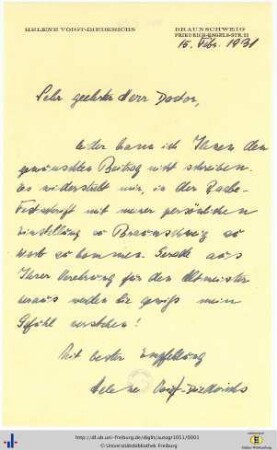 HELENE VOIGT-DIEDERICHS
BRAUNSCHWEIG
15. Febr. 1931
Sehr geehrter Herr Doctor,
leider kann ich Ihnen den
gewünschten Beitrag nicht schreiben.
es widersteht mir, in der Raabe-
Festschrift mit meiner persönlichen
Einstellung zu Braunschweig zu
Wort zu kommen. Gerade aus
Ihrer Verehrung für den Altmeister
heraus werden Sie gewiss mein
Gefühl verstehen!
Mit bester Empfehlung
Helene Voigt-Diederichs
http://dl.ub.uni-freiburg.de/diglit/autogr1051/0001
© Universitätsbibliothek Freiburg